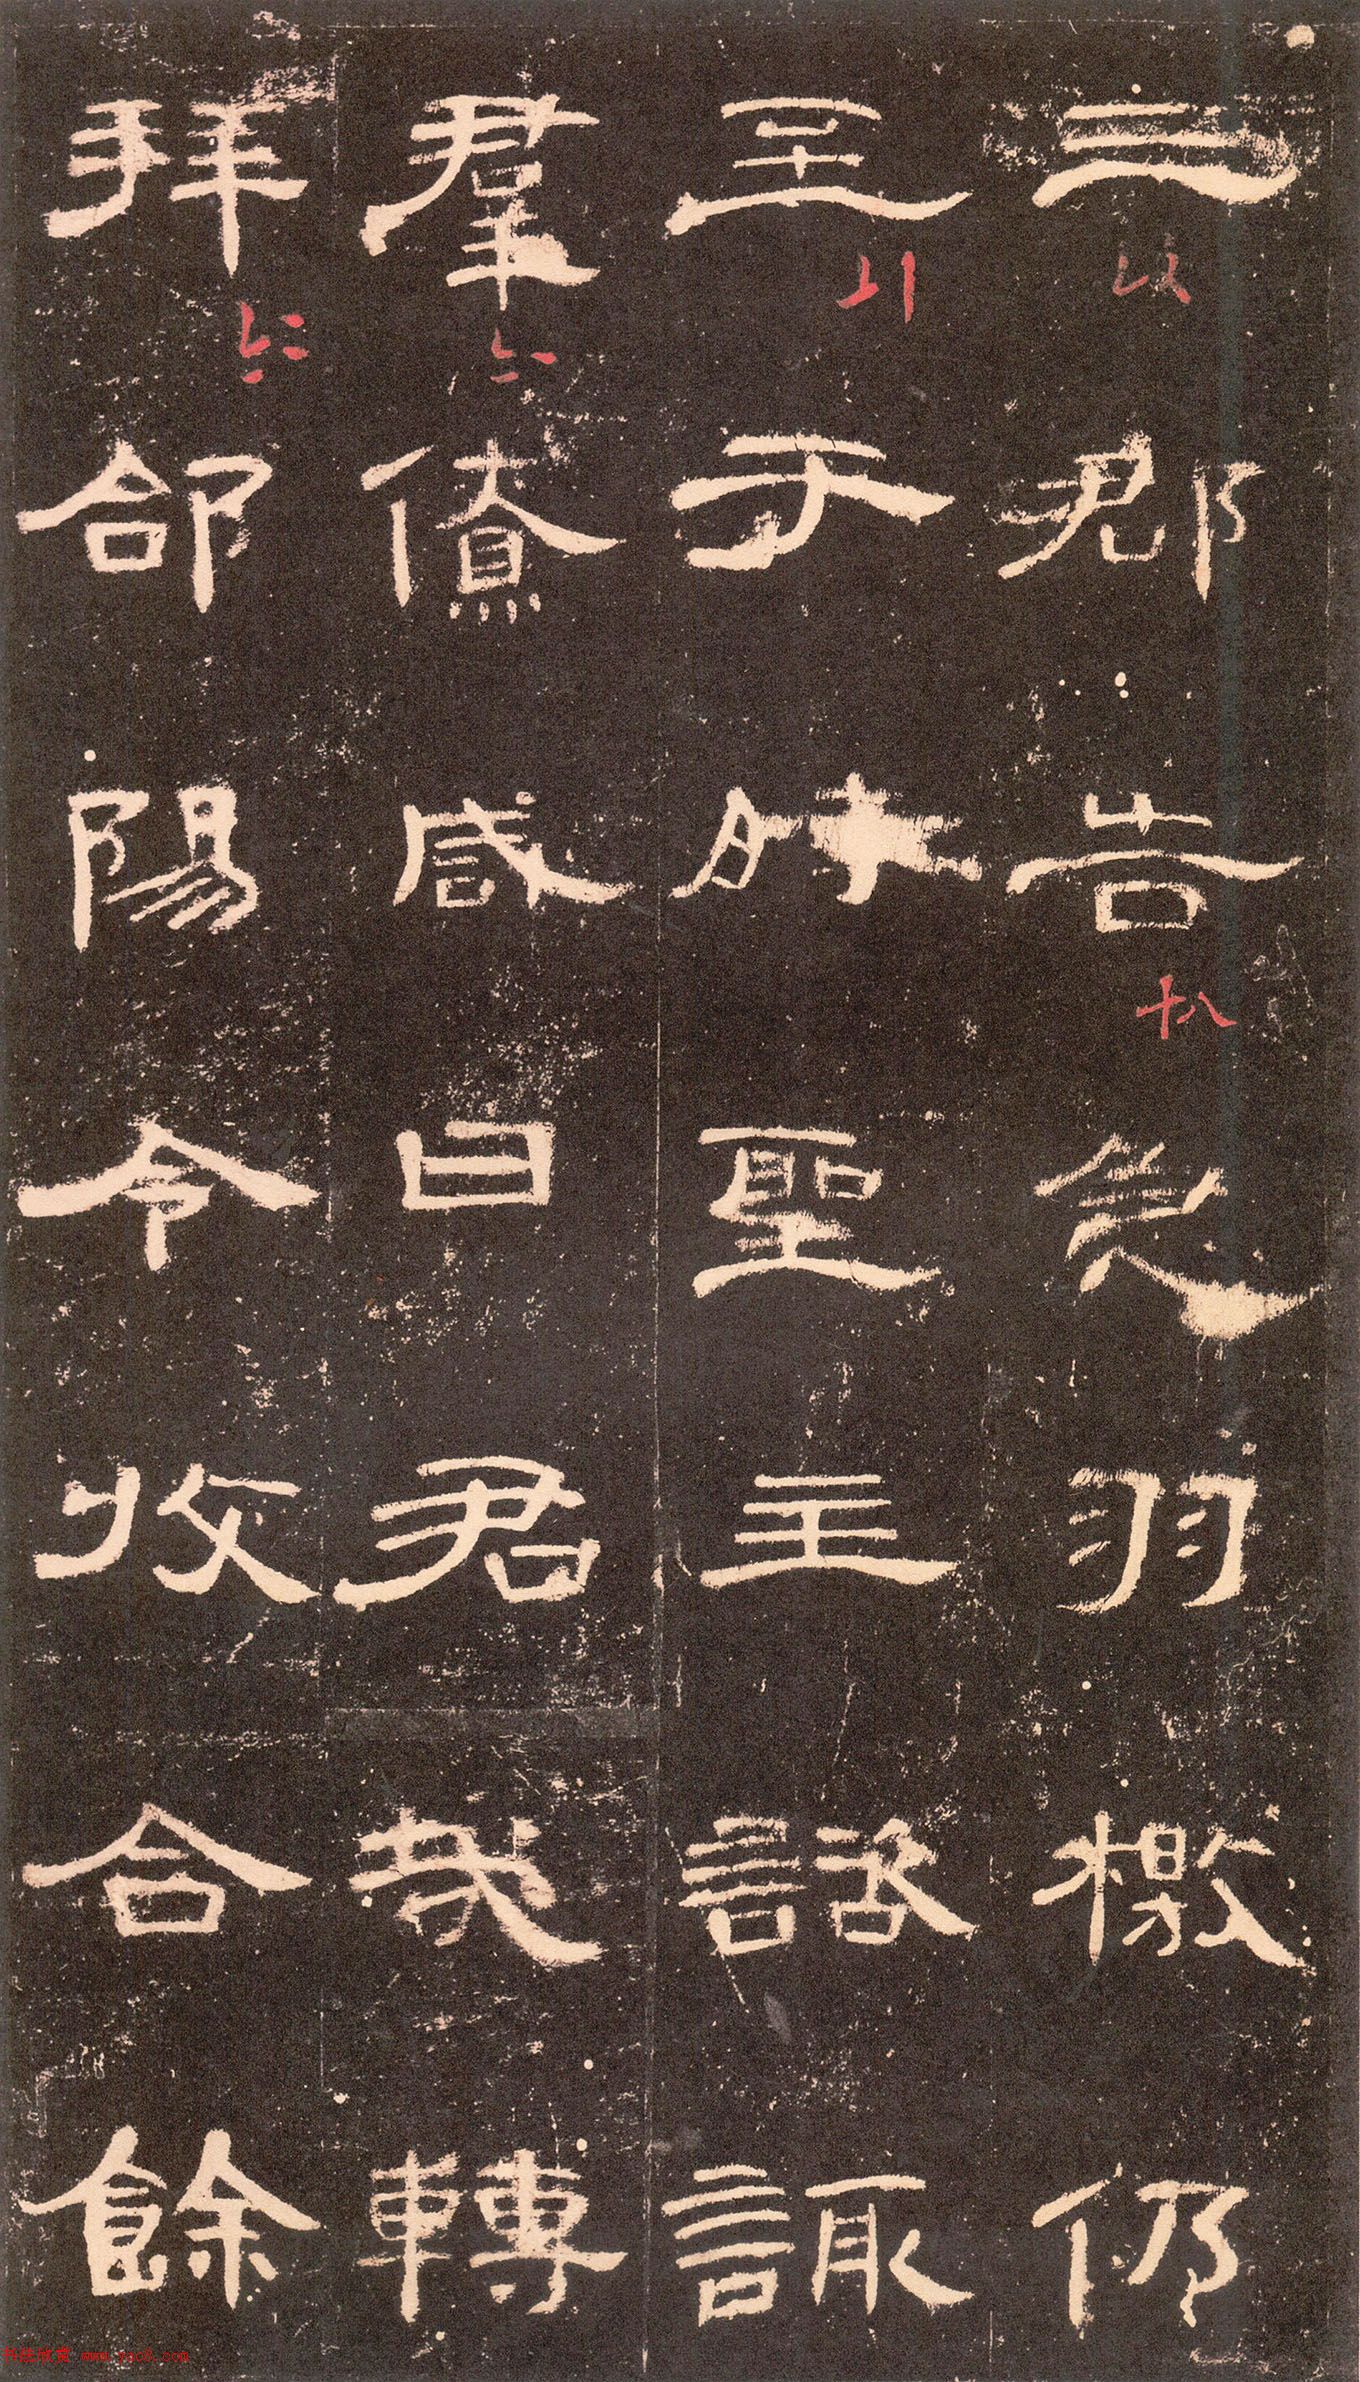 三郡告急羽檄仍
至于時聖主諮諏
羣僚咸曰君哉轉
拜郃陽令收合餘
十八
www.yac8.com